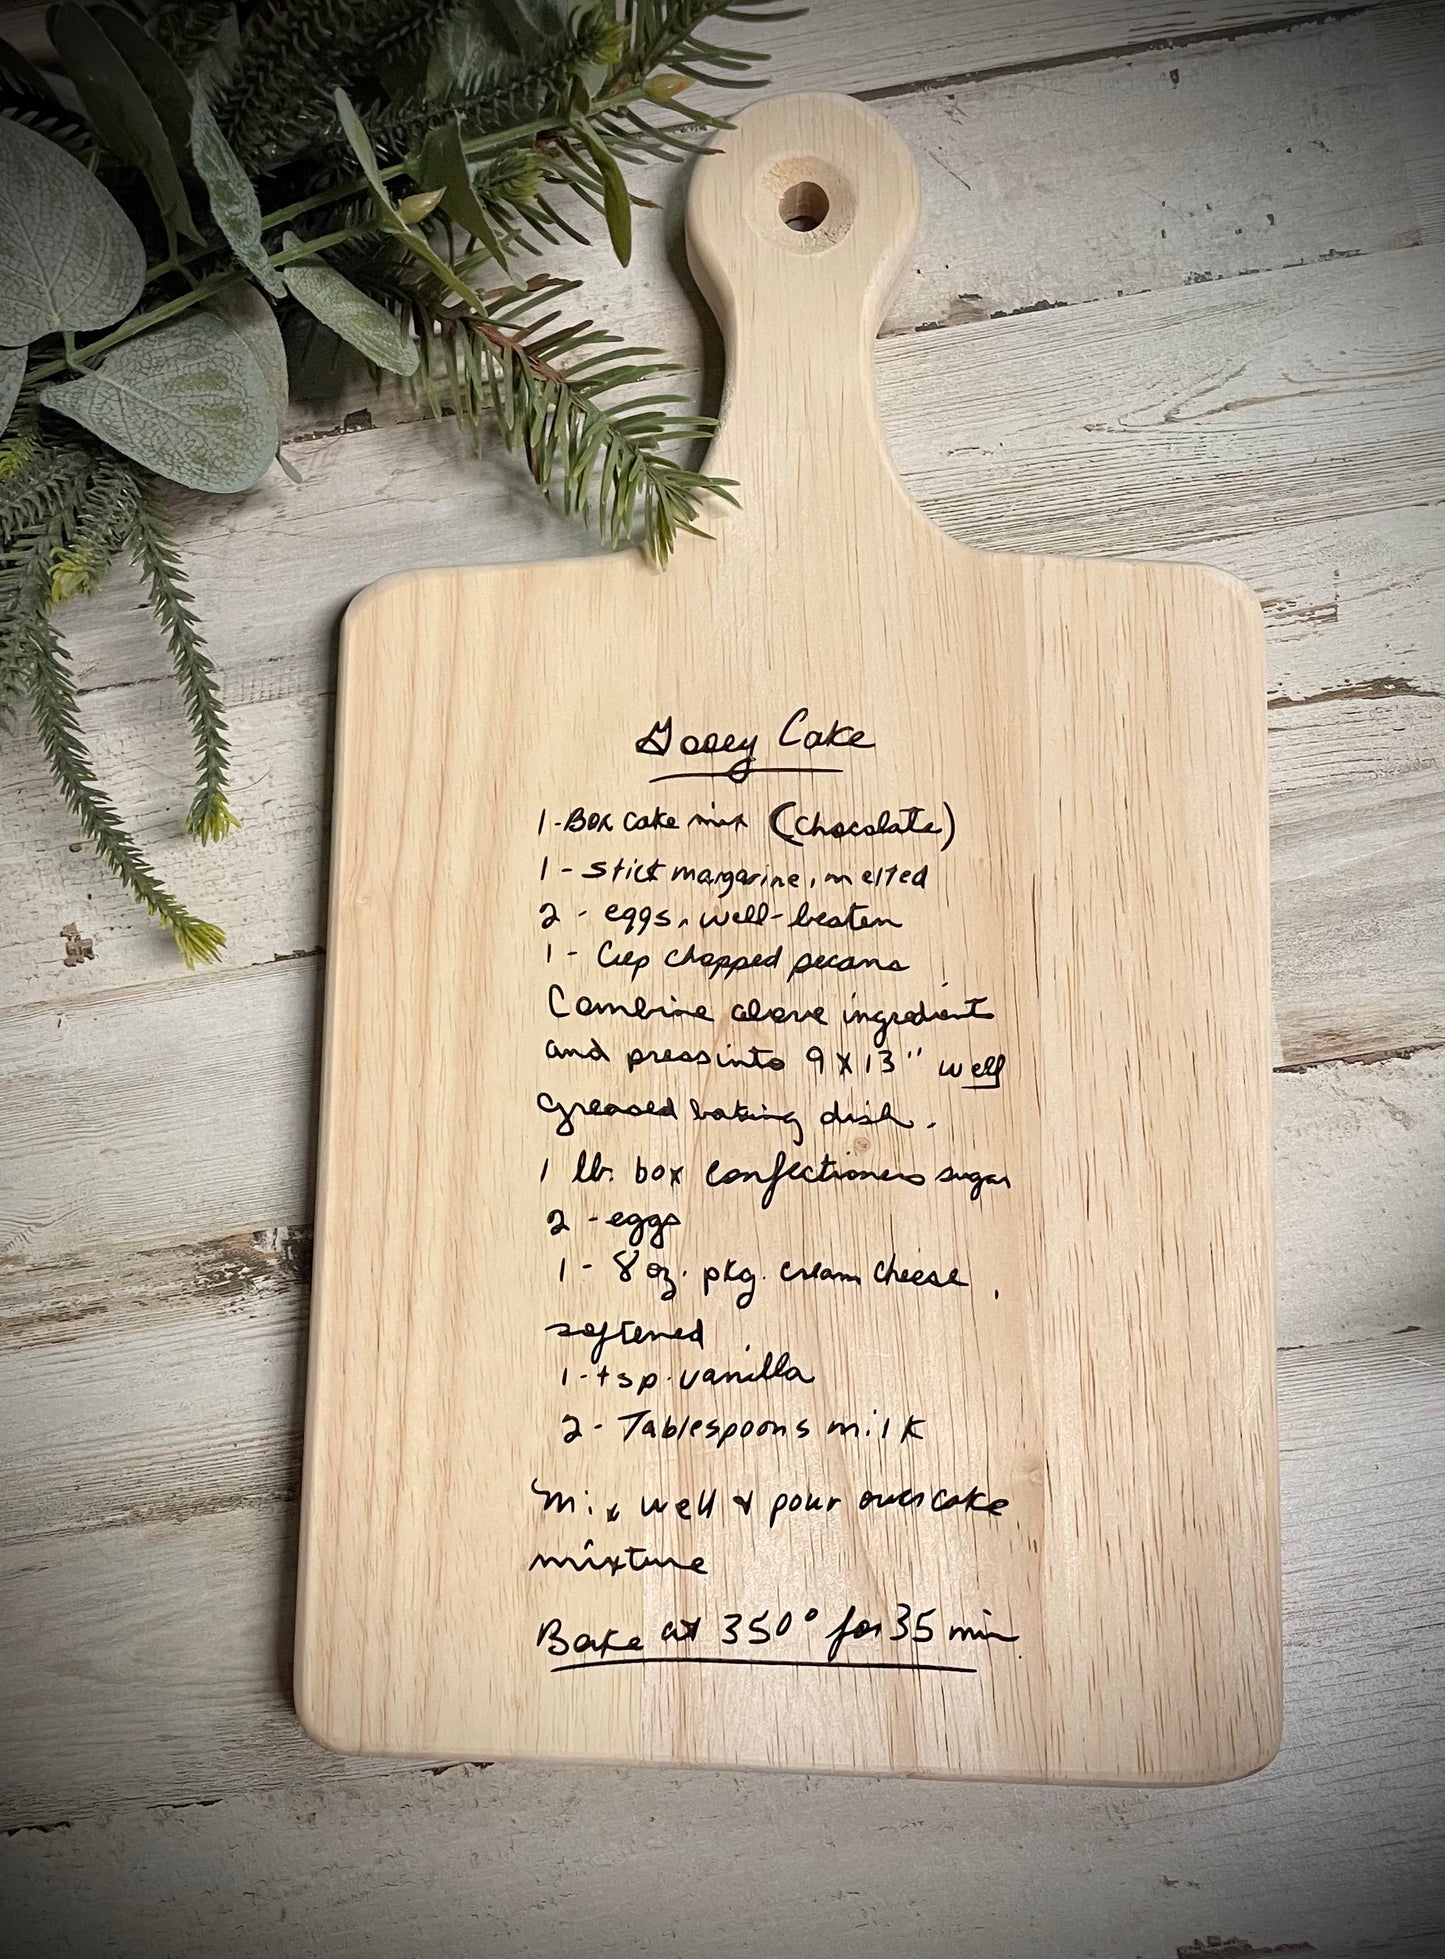 Gooey Cake
1-Box cake mix (chocolate)
1 - stick margarine, melted
2 - eggs, well-beaten
1 - Cup chopped pecans
Combine above ingredients
and press into 9 X 13" well
greased baking dish.
1 lb. box confectioners sugar
2 - eggs
1 - 8 oz. pkg. cream cheese,
softened
1 - tsp. vanilla
2 - Tablespoons milk
Mix well & pour over cake
mixture
Bake at 350° for 35 min.